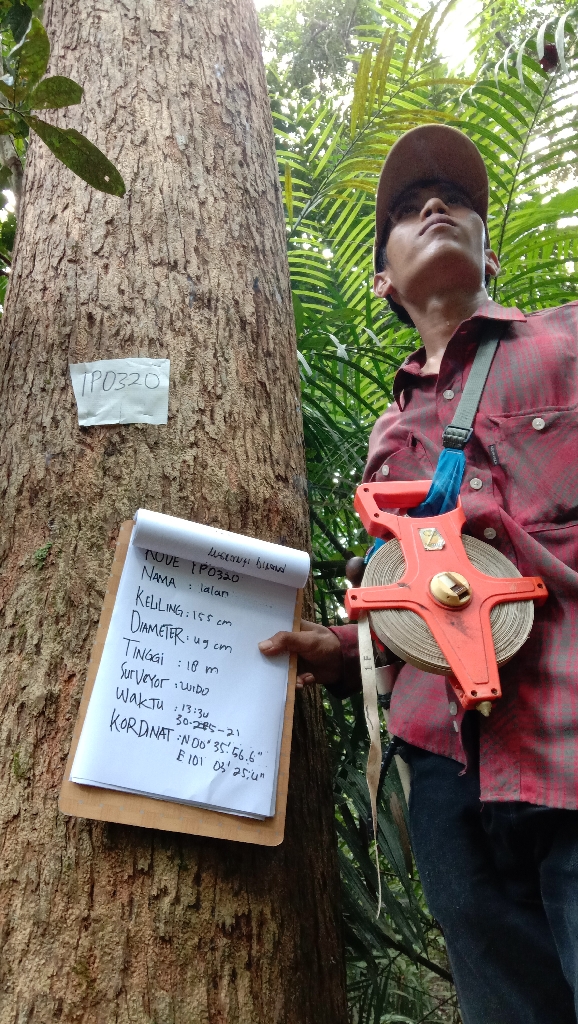 IP0320
KODE IP0320
NAMA : lalan
KELILING : 155 cm
DIAMETER : 49 cm
TINGGI : 18 m
SURVEYOR : WIDO
WAKTU : 13:30
30-05-21
KORDINAT : N 00° 35' 56.6"
E 101 03' 25.4"